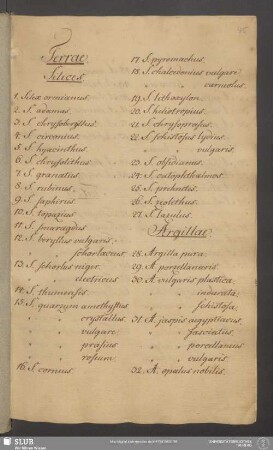 Terrae
Silices
1. Silex ormixinus.
2. S. adamas.
3. S. chrysoberyllus.
4. S. circonius.
5. S. hyacinthus.
6. S. chrysolithus.
7. S. granatus.
8. S. rubinus.
9. S. saphirus.
10. S. topazius.
11. S. smaragdus
12. S. beryllus vulgaris.
" schorlaceus.
13. S. schorlus niger.
" electricus
14. S. thumensis.
15. S. quarzum amethystus
" crystallus.
" vulgare
" prasius
" roseum.
16. S. corneus.
17. S. pyromachus.
18. S. chalcedonius vulgaris
" carneolus.
19. S. lithoxylon.
20. S. heliotropius.
21. S. chrysoprasus.
22. S. schistosus lydius
" vulgaris.
23. S. obsidianus.
24. S. catophthalmus.
25. S. prehnites.
26. S. zeolithus.
27. S. lazulus.
Argillae
28. Argilla pura.
29. A. porcellanaris.
30. A. vulgaris plastica.
" indurata.
" schistosa.
31. A. jaspis aegyptiacus.
" fasciatus.
" porcellaneus
" vulgaris.
32. A. opalus nobilis.
SLUB